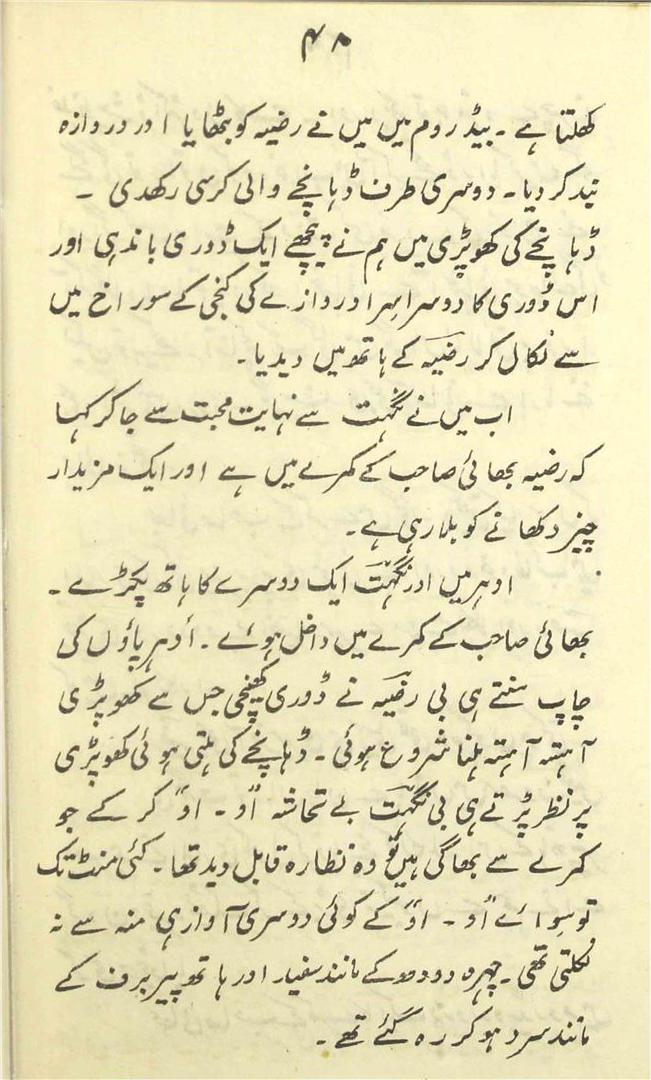 ۴۸
کھلتا ہے ۔ بیڈ روم میں میں نے رضیہ کو بٹھایا اور دروازہ
بند کر دیا۔ دوسری طرف ڈہانچے والی کرسی رکھدی ۔
ڈہانچے کی کھوپڑی میں ہم نے پیچھے ایک ڈوری باندہی اور
اس ڈوری کا دوسرا سِرا دروازے کی کنجی کے سوراخ میں
سے نکال کر رضیہ کے ہاتھ میں دیدیا۔
اب میں نے نگہت سے نہایت محبت سے جا کر کہا
کہ رضیہ بھائی صاحب کے کمرے میں ہے اور ایک مزیدار
چیز دکھانے کو بلا رہی ہے۔
ادہر میں اور نگہت ایک دوسرے کا ہاتھ پکڑے ۔
بھائی صاحب کے کمرے میں داخل ہوئے ۔ اُدہر پاؤں کی
چاپ سنتے ہی بی رضیہ نے ڈوری کھینچی جس سے کھوپڑی
آہستہ آہستہ ہلنا شروع ہوئی ۔ ڈہانچے کی ہلتی ہوئی کھوپڑی
پر نظر پڑتے ہی بی نگہت بے تحاشہ "اُو ۔ اوُ" کر کے جو
کمرے سے بھاگی ہیں تو وہ نظارہ قابل دید تھا ۔ کئی منٹ تک
تو سوائے "اُو ۔ اوُ" کے کوئی دوسری آواز ہی منہ سے نہ
نکلتی تھی ۔ چہرہ دودھ کے مانند سفید اور ہاتھ پیر برف کے
مانند سرد ہو کر رہ گئے تھے ۔